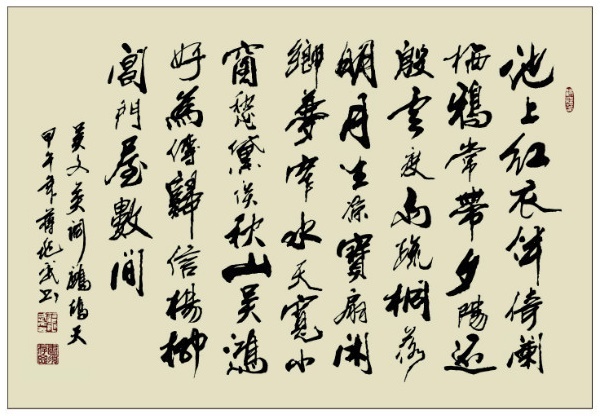 池上紅衣伴倚闌
栖鴉常帶夕陽还
殷雲度雨疏桐落
明月生涼寶扇閑
鄉夢窄水天寬小
窗愁黛淡秋山吴鴻
好為傳歸信楊柳
閶門屋數間
吴文英詞鷓鴣天
甲午年蔣武书